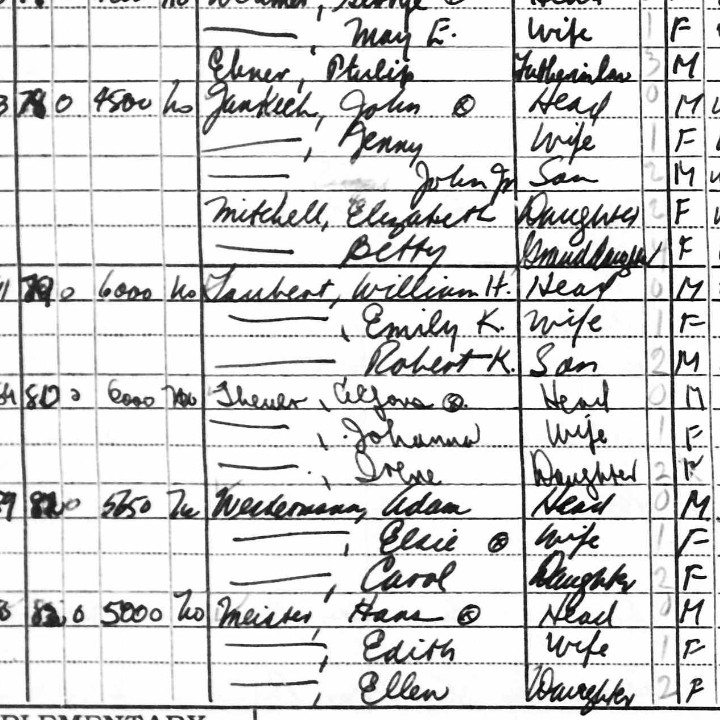 May E. Wife 1 F
Ebner, Philip Fatherinlaw 3 M
3 78 0 4500 no John ⓧ Head 0 M
Jenny Wife 1 F
John Jr Son 2 M
Mitchell, Elizabeth Daughter 2 F
Betty GrandDaughter F
79 0 6000 no Taubert, William H. Head 0 M
, Emily K. Wife 1 F
Robert K. Son 2 M
80 0 6000 no Theuer, ⓧ Head 0 M
, Johanna Wife 1 F
, Irene Daughter 2 F
9 0 5650 no Weidermann, Adam Head 0 M
, Elsie ⓧ Wife 1 F
, Carol Daughter 2 F
0 5000 no Meister, Hans ⓧ Head 0 M
, Edith Wife 1 F
, Ellen Daughter 2 F